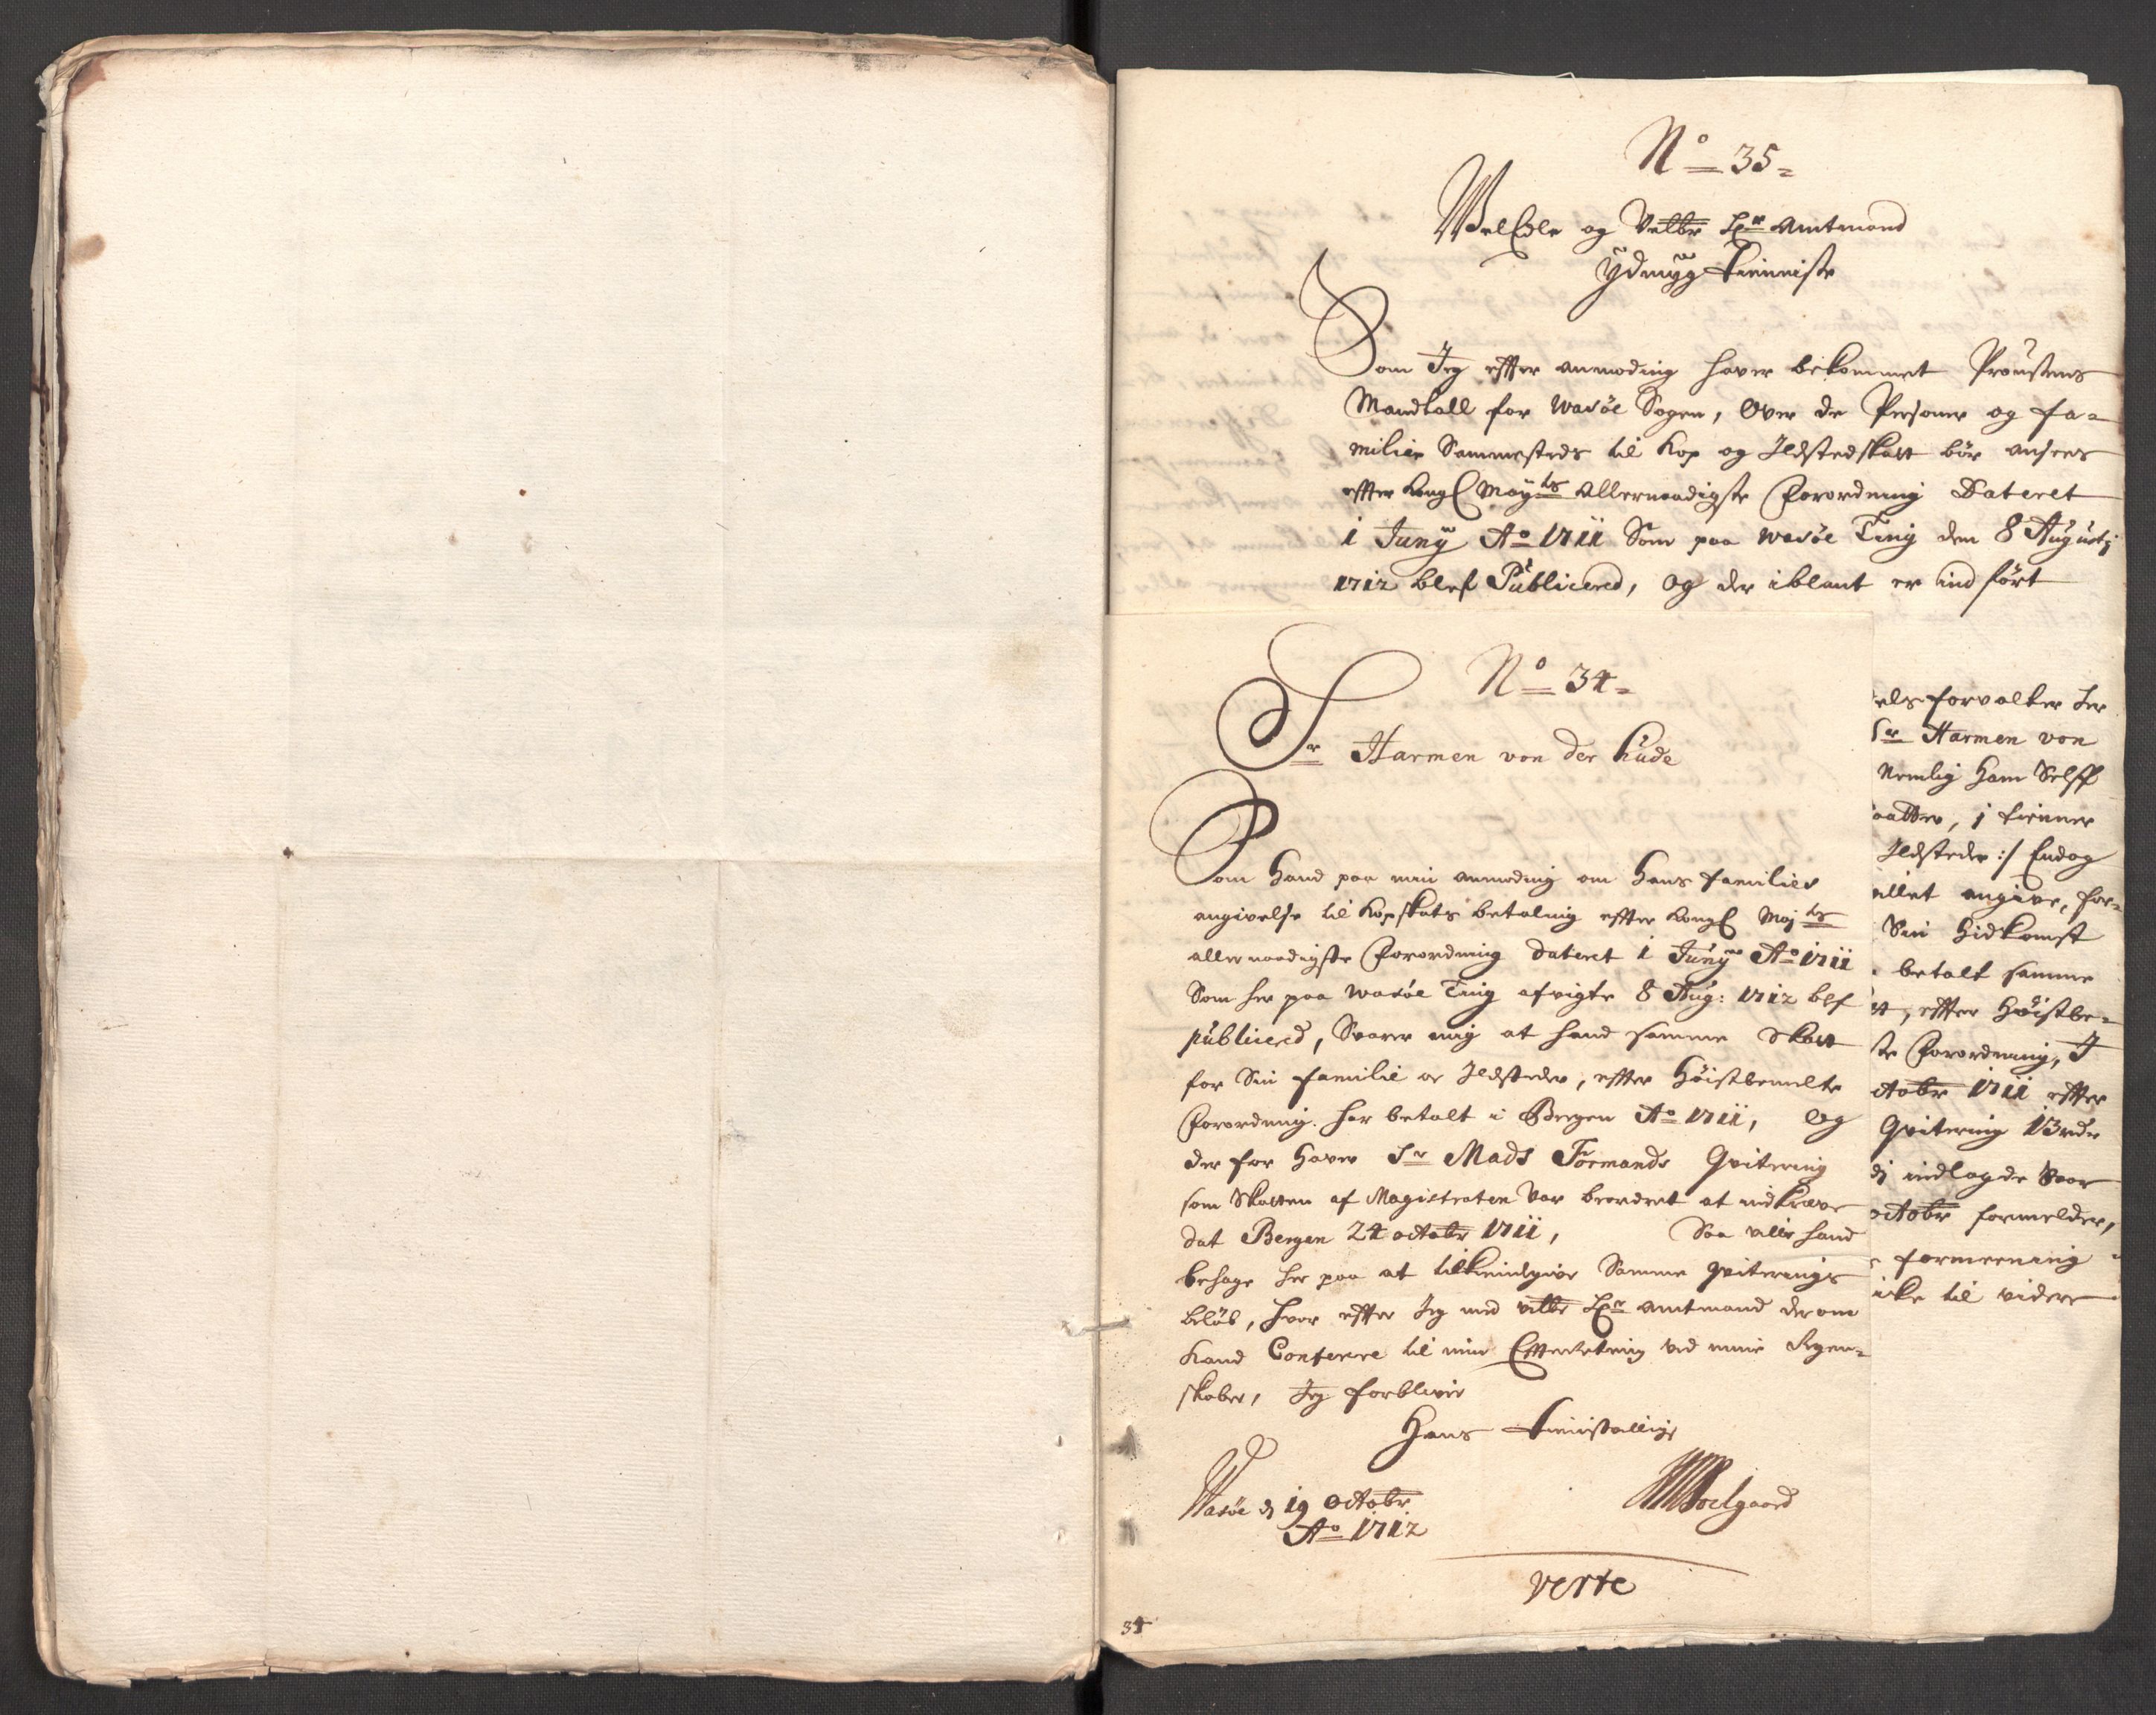 No 35
WelEdle og Velbr Hr Amtmand
ydmyg tieniste
Som Jeg effter anmoding haver bekommet Proustens
Mandtall for Wadsöe Sogen, Over de Personer og fa-
milier Sammesteds til Kop og Ildstedskatt bör ansees
effter Kongl Mayts Allernaadigste Forordning Dateret
1 Juny Ao 1711 Som paa Wadsöe Ting den 8 Augustj
1712 blef Publicered, og der iblant er indfört
No 34
Sr Harmen von der Hude
Som Hand paa min anmoding om Hans families
angivelse til Kopskats betaling effter Kongl Majts
allernaadigste Forordning dateret 1 Juny Ao 1711
Som her paa Wadsöe Ting afvigte 8 Aug: 1712 blef
publicered, Svarer mig at hand samme Skatt
for Sin familie oc Ildsteder, effter höistbemelte
Forordning. har betalt i Bergen Ao 1711, og
der for haver Sr Mads Formands Qvitering
som Skatten af Magistraten var beordret at indkræve
dat Bergen 24 octobr 1711, Saa ville hand
behage her paa at tilkiendgive Samme qviterings
beløb, hvor effter Jeg med velbr Hr Amtmand derom
kand Conferere til min Effterretning ved mine Regen-
skaber, Jeg forblives
Hans tienistvillige
Wadsöe d 19 octobr
Ao 1712
verte
34
els forvalter Her
Sr Harmen von
Nemlig ham Selff
aatter, 1 tienner
Ildsteder :/ Endog
allet angive, for-
Sin hidkomst
betalt samme
tt, effter höistbe-
te Forordning, I
ctobr 1711 effter
Qvitering 13nde
di indlagde Svar
octobr formelder,
formeening
icke til videre